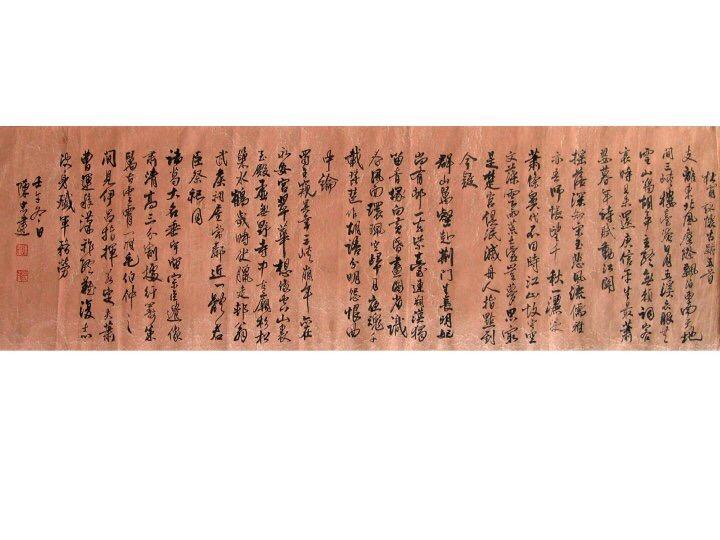 杜甫詠懷古跡五首
支離東北風塵際飄泊西南天地
間三峽樓臺淹日月五溪衣服共
雲山羯胡事主終無賴詞客
哀時且未還庾信平生最蕭
瑟暮年詩賦動江關
搖落深知宋玉悲風流儒雅
亦吾師悵望千秋一灑淚
蕭條異代不同時江山故宅空
文藻雲雨荒臺豈夢思最
是楚宮俱泯滅舟人指點到
今疑
群山萬壑赴荊門生長明妃
尚有邨一去紫臺連朔漠獨
留青塚向黃昏畫圖省識
春風面環珮空歸月夜魂千
載琵琶作胡語分明怨恨曲
中論
蜀主窺吳幸三峽崩年亦在
永安宮翠華想像空山裏
玉殿虛無野寺中古廟杉松
巢水鶴歲時伏臘走邨翁
武侯祠屋常鄰近一體君
臣祭祀同
諸葛大名垂宇宙宗臣遺像
肅清高三分割據紆籌策
萬古雲霄一羽毛伯仲之
間見伊呂指揮若定失蕭
曹運移漢祚終難復志
決身殲軍務勞
壬午冬日
陳忠建